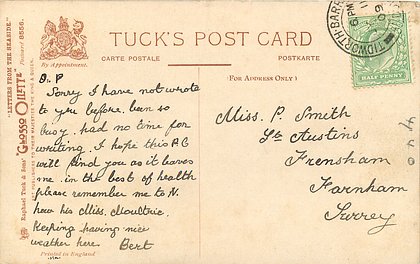 TUCK'S POST CARD
CARTE POSTALE
POSTKARTE
By Appointment.
(FOR ADDRESS ONLY)
"LETTERS FROM THE SEASIDE."
Postcard 8556.
"GLOSSO OLLETTE"
Raphael Tuck & Sons'
ART PUBLISHERS TO THEIR MAJESTIES THE KING & QUEEN.
TIDWORTH·BARR
6 PM
HALF PENNY
D. P
Sorry I have not wrote
to you before. been so
busy. had no time for
writing. I hope this P.C
will find you as it leaves
me. in the best of health
please remember me to N.
how his Miss. Moultrie.
Keeping having nice
weather here. Bert
Printed in England
Miss. P. Smith
St Austins
Frensham
Farnham
Surrey